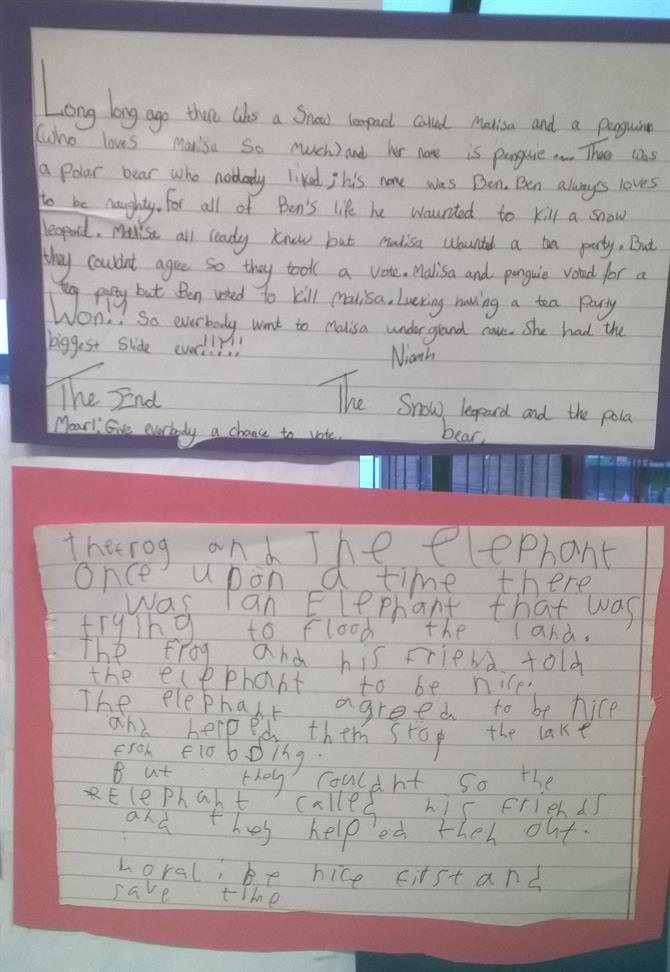 Long long ago there was a Snow leopard called Malisa and a penguine
(who loves Malisa So much) and her name is penguie .... There was
a polar bear who nobody liked; his name was Ben. Ben always loves
to be naughty. For all of Ben's life he waunted to kill a snow
leopard. Malisa all ready knew but Malisa waunted a tea party. But
they couldnt agree so they took a vote. Malisa and penguie voted for a
tea party but Ben voted to kill Malisa. Lucking having a tea Party
Won!! So everbody went to Malisa undergland cave. She had the
biggest Slide ever!!!!!!
Niamh
The End
The Snow leopard and the pola
bear.
Moarl: Give everbody a chance to vote.
thefrog and The elephant
Once upon a time there
was an Elephant that was
trying to flood the land.
The frog and his friend told
the elephant to be nice.
The elephant agreed to be nice
and helped them stop the lake
from flooding.
But they couldnt so the
Elephant called his friends
and they helped them out.
moral: Be nice first and
save time